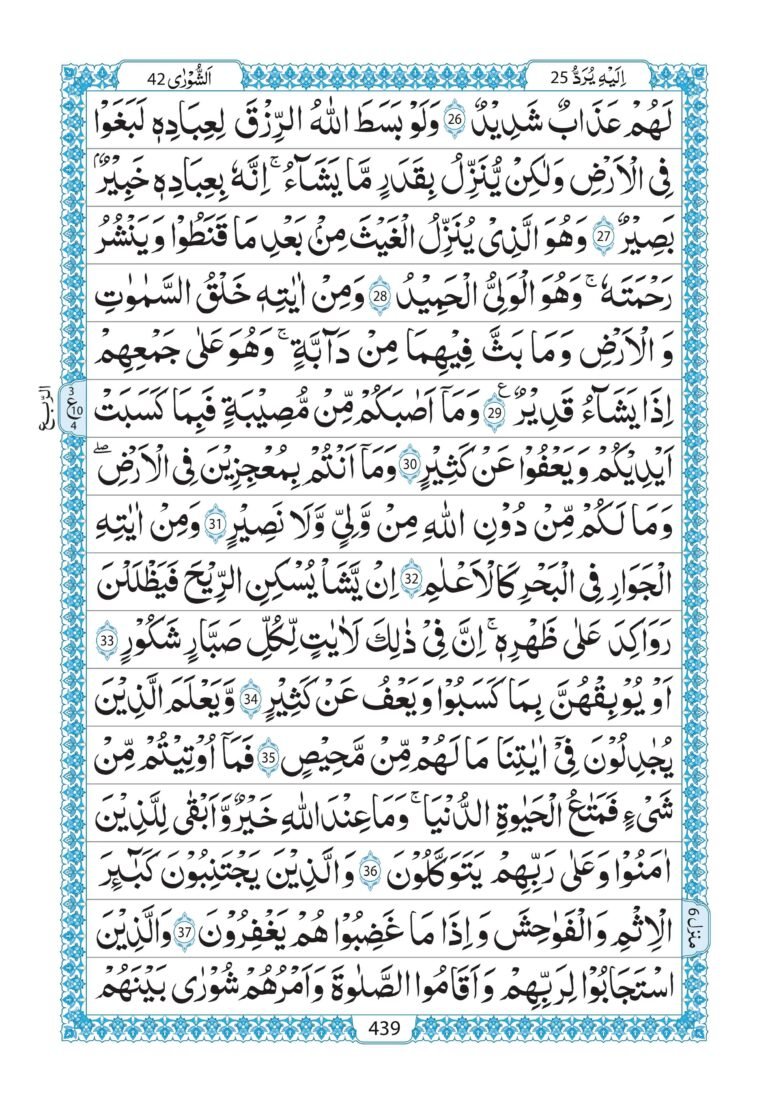 اِلَیْهِ یُرَدُّ 25
اَلشُّوْرٰی 42
لَهُمْ عَذَابٌ شَدِیْدٌ 26 وَلَوْ بَسَطَ اللّٰهُ الرِّزْقَ لِعِبَادِهٖ لَبَغَوْا
فِی الْاَرْضِ وَلٰكِنْ یُّنَزِّلُ بِقَدَرٍ مَّا یَشَآءُ ۚ اِنَّهٗ بِعِبَادِهٖ خَبِیْرٌۢ
بَصِیْرٌ 27 وَهُوَ الَّذِیْ یُنَزِّلُ الْغَیْثَ مِنْۢ بَعْدِ مَا قَنَطُوْا وَیَنْشُرُ
رَحْمَتَهٗ ۚ وَهُوَ الْوَلِیُّ الْحَمِیْدُ 28 وَمِنْ اٰیٰتِهٖ خَلْقُ السَّمٰوٰتِ
وَ الْاَرْضِ وَمَا بَثَّ فِیْهِمَا مِنْ دَآبَّةٍ ۚ وَهُوَ عَلٰی جَمْعِهِمْ
اِذَا یَشَآءُ قَدِیْرٌ 29 ع وَمَاۤ اَصَابَكُمْ مِّنْ مُّصِیْبَةٍ فَبِمَا كَسَبَتْ
الرّبع
3
ع 10
4
اَیْدِیْكُمْ وَیَعْفُوْا عَنْ كَثِیْرٍ 30 وَمَاۤ اَنْتُمْ بِمُعْجِزِیْنَ فِی الْاَرْضِ ۖۚ
وَمَا لَكُمْ مِّنْ دُوْنِ اللّٰهِ مِنْ وَّلِیٍّ وَّلَا نَصِیْرٍ 31 وَمِنْ اٰیٰتِهِ
الْجَوَارِ فِی الْبَحْرِ كَالْاَعْلَامِ 32 اِنْ یَّشَاْ یُسْكِنِ الرِّیْحَ فَیَظْلَلْنَ
رَوَاكِدَ عَلٰی ظَهْرِهٖ ۚ اِنَّ فِیْ ذٰلِكَ لَاٰیٰتٍ لِّكُلِّ صَبَّارٍ شَكُوْرٍ 33
اَوْ یُوْبِقْهُنَّ بِمَا كَسَبُوْا وَیَعْفُ عَنْ كَثِیْرٍ 34 وَّیَعْلَمَ الَّذِیْنَ
یُجَادِلُوْنَ فِیْۤ اٰیٰتِنَا مَا لَهُمْ مِّنْ مَّحِیْصٍ 35 فَمَاۤ اُوْتِیْتُمْ مِّنْ
شَیْءٍ فَمَتَاعُ الْحَیٰوةِ الدُّنْیَا ۚ وَمَا عِنْدَ اللّٰهِ خَیْرٌ وَّاَبْقٰی لِلَّذِیْنَ
اٰمَنُوْا وَعَلٰی رَبِّهِمْ یَتَوَكَّلُوْنَ 36 وَالَّذِیْنَ یَجْتَنِبُوْنَ كَبٰٓىِٕرَ
الْاِثْمِ وَالْفَوَاحِشَ وَاِذَا مَا غَضِبُوْا هُمْ یَغْفِرُوْنَ 37 وَالَّذِیْنَ
منزل 6
اسْتَجَابُوْا لِرَبِّهِمْ وَاَقَامُوا الصَّلٰوةَ وَاَمْرُهُمْ شُوْرٰی بَیْنَهُمْ
439